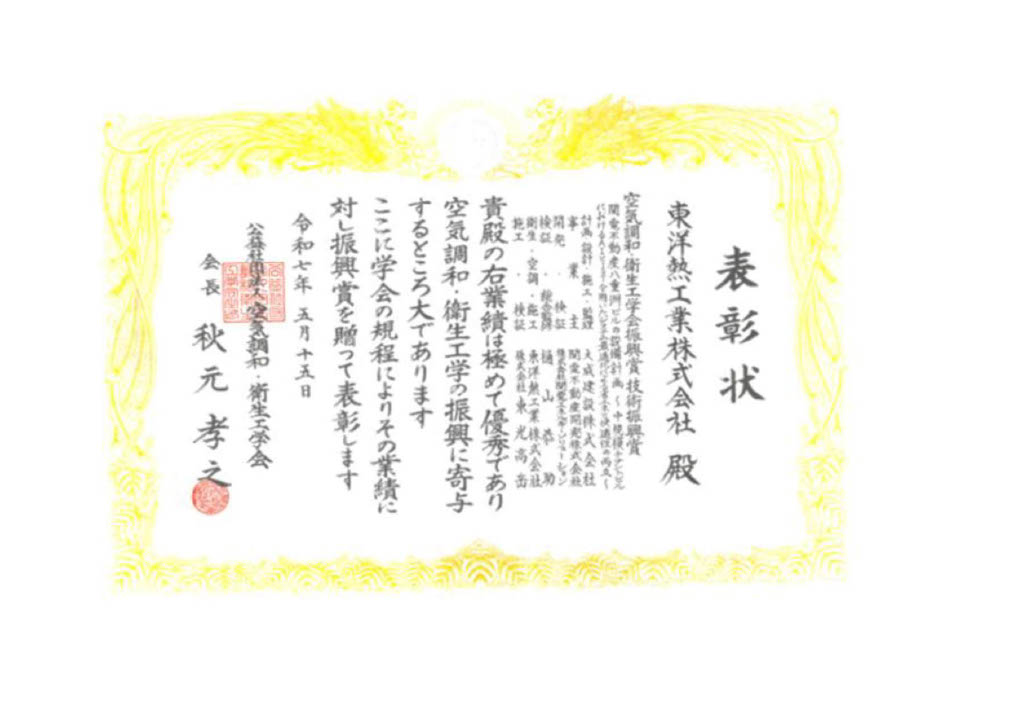 表彰状
東洋熱工業株式会社 殿
空気調和・衛生工学会振興賞技術振興賞
関電不動産八重洲ビルの設備計画～中規模テナントビル
における
計画・設計・施工・監理 大成建設株式会社
事業主 関電不動産開発株式会社
開発・検証
検証・総合監修 樋山恭助
衛生・空調・施工 東洋熱工業株式会社
施工・検証 株式会社東光高岳
貴殿の右業績は極めて優秀であり
空気調和・衛生工学の振興に寄与
するところ大であります
ここに学会の規程によりその業績に
対し振興賞を贈って表彰します
令和七年 五月十五日
公益社団法人 空気調和・衛生工学会
会長 秋元孝之